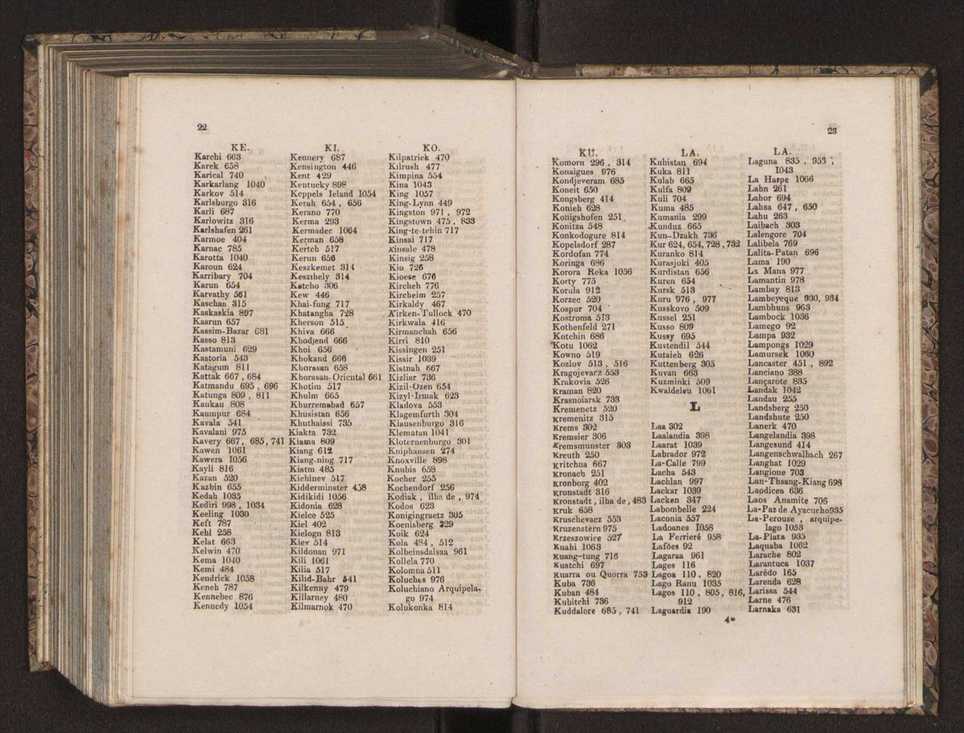 22
KE.
Karchi 663
Karek 658
Karical 740
Karkarlang 1040
Karkov 514
Karlsburgo 316
Karli 687
Karlowitz 316
Karlshafen 261
Karmoe 404
Karnac 785
Karotta 1040
Karoun 624
Karribary 704
Karun 654
Karvathy 561
Kaschan 315
Kaskaskia 897
Kasrun 657
Kassim-Bazar 681
Kasso 813
Kastamuni 629
Kastoria 543
Katagum 811
Kattak 667 , 684
Katmandu 695 , 696
Katunga 809 , 811
Kaukau 808
Kaumpur 684
Kavala 541
Kavalani 975
Kavery 667 , 685, 741
Kawen 1061
Kawera 1056
Kayli 816
Kazan 520
Kazbin 655
Kedah 1035
Kediri 998 , 1034
Keeling 1030
Keft 787
Kehl 258
Kelat 663
Kelwin 470
Kema 1040
Kemi 484
Kendrick 1058
Keneh 787
Kennebec 876
Kennedy 1054
KI.
Kennery 687
Kensington 446
Kent 429
Kentucky 898
Keppels Island 1054
Kerah 654 , 656
Kerano 770
Kerma 293
Kermadec 1064
Kerman 658
Kertch 517
Kerun 656
Keszkemet 314
Keszthely 314
Ketcho 706
Kew 446
Khai-fung 717
Khatangha 728
Kherson 515
Khiva 666
Khodjend 666
Khoi 656
Khokand 666
Khorasan 658
Khorasan-Oriental 661
Khotim 517
Khulm 665
Khurremabad 657
Khusistan 656
Khuthaissi 735
Kiakta 732
Kiama 809
Kiang 612
Kiang-ning 717
Kiatm 485
Kichinev 517
Kidderminster 458
Kidikidi 1056
Kidonia 628
Kielce 525
Kiel 402
Kielogn 813
Kiev 514
Kildonan 971
Kili 1061
Kilia 517
Kilid-Bahr 541
Kilkenny 479
Killarney 480
Kilmarnok 470
KO.
Kilpatrick 470
Kilrush 477
Kimpina 554
Kina 1043
King 1057
King-Lynn 449
Kingston 971 , 972
Kingstown 475 , 833
King-te-tchin 717
Kinsai 717
Kinsale 478
Kinsig 258
Kio 726
Kioese 676
Kircheh 776
Kircheim 257
Kirkaldy 467
Kirken-Tullock 470
Kirkwala 416
Kirmanchah 656
Kirri 810
Kissingen 251
Kissir 1039
Kistnah 667
Kizliar 736
Kizil-Ozen 654
Kizyl-Irmak 623
Kladova 553
Klagemfurth 304
Klausenburgo 316
Klematan 1041
Kloternenburgo 301
Kniphausen 274
Knoxville 898
Knubis 658
Kocher 255
Kochendorf 256
Kodiak , ilha de , 974
Kodos 623
Konigingraetz 305
Koenisberg 229
Koik 624
Kola 484 , 512
Kolbeinsdalsaa 961
Kollela 770
Kolomna 511
Koluchas 976
Koluchiano Arquipela-
go 974
Kolukonka 814
23
KU.
Komorn 296 , 314
Konaigues 976
Kondjeveram 685
Koneit 650
Kongsberg 414
Konieh 628
Konigshofen 251
Konitza 548
Konkodogure 814
Kopelsdorf 287
Kordofan 774
Koringa 686
Korora Reka 1056
Korty 773
Korula 912
Korzec 520
Kospur 704
Kostroma 513
Kothenfeld 271
Kotchin 686
Kotu 1062
Kowno 519
Kozlov 513 , 516
Kragojevarz 553
Krakovia 526
Kraman 820
Krasnoiarsk 733
Kremenetz 520
Kremenitz 315
Krems 302
Kremsier 306
Kremsmunster 303
Kreuth 250
Kritchna 667
Kronach 251
Kronborg 402
Kronstadt 316
Kronstadt , ilha de , 483
Kruk 658
Kruschevacz 553
Kruzenstern 975
Krzeszowice 527
Kuahi 1063
Kuang-tung 716
Kuatchi 697
Kuarra ou Quorra 753
Kuba 736
Kuban 484
Kubitchi 736
Kuddalore 685 , 741
LA.
Kuhistan 694
Kuka 811
Kulab 665
Kulfa 809
Kuli 704
Kuma 485
Kumania 299
Kunduz 665
Kun-Dzakh 736
Kur 624, 654, 728, 732
Kuranko 814
Kurasjoki 405
Kurdistan 656
Kuren 654
Kursk 513
Kuru 976 , 977
Kusskovo 509
Kussel 251
Kusso 809
Kussy 695
Kustendil 544
Kutaieh 626
Kuttenberg 305
Kuvan 663
Kuzminki 509
Kwaldeleu 1061
L
Laa 302
Laalandia 398
Laarat 1039
Labrador 972
La-Calle 799
Lacha 543
Lachlan 997
Lackar 1039
Lacken 347
Labombelle 224
Laconia 557
Ladoanes 1058
La Ferrieré 958
Lafões 92
Lagaraa 961
Lages 116
Lagoa 110 , 820
Lago Ranu 1035
Lagos 110 , 805 , 816,
912
Laguardia 190
LA.
Laguna 835 , 953 ,
1043
La Harpe 1066
Lahn 261
Lahor 694
Lahsa 647 , 650
Lahu 263
Laibach 303
Lalengore 704
Lalibela 769
Lalita-Patan 696
Lama 190
La Mana 977
Lamantin 978
Lambay 813
Lambeyeque 930, 934
Lambhuns 963
Lambock 1036
Lamego 92
Lampa 932
Lampongs 1029
Lamursek 1060
Lancaster 451 , 892
Lanciano 388
Lançarote 835
Landak 1042
Landau 255
Landsberg 250
Landshute 250
Lanerk 470
Langelandia 398
Langesund 414
Langenschwalbach 267
Langhat 1029
Langione 703
Lan-Thsang-Kiang 698
Laodicea 636
Laos Anamite 706
La-Paz de Ayacucho 935
La-Perouse , arquipe-
lago 1053
La-Plata 935
Laquaba 1062
Larache 802
Larantuca 1037
Larêdo 165
Larenda 628
Larissa 544
Larne 476
Larnaka 631
4*